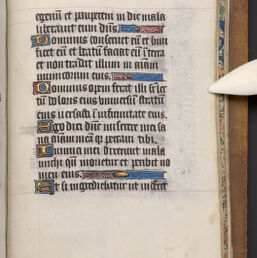 egenum et pauperem in die mala
liberabit eum dns.
Dominus conseruet eu et viui
ficet eu et beatum faciat eu i terra
et non tradat illum in aiam
inimicorum eius.
Dominus opem ferat illi sr lec
tu doloris eius uniuersu stratu
eius uersasti i infirmitate eius.
Ego dixi dne miserere mei sa
na aiam mea qr peccaui tibi.
Inimici mei dixerunt mala
michi qn morietur et peribit no
men eius.
Et si ingrediebatur ut uideret